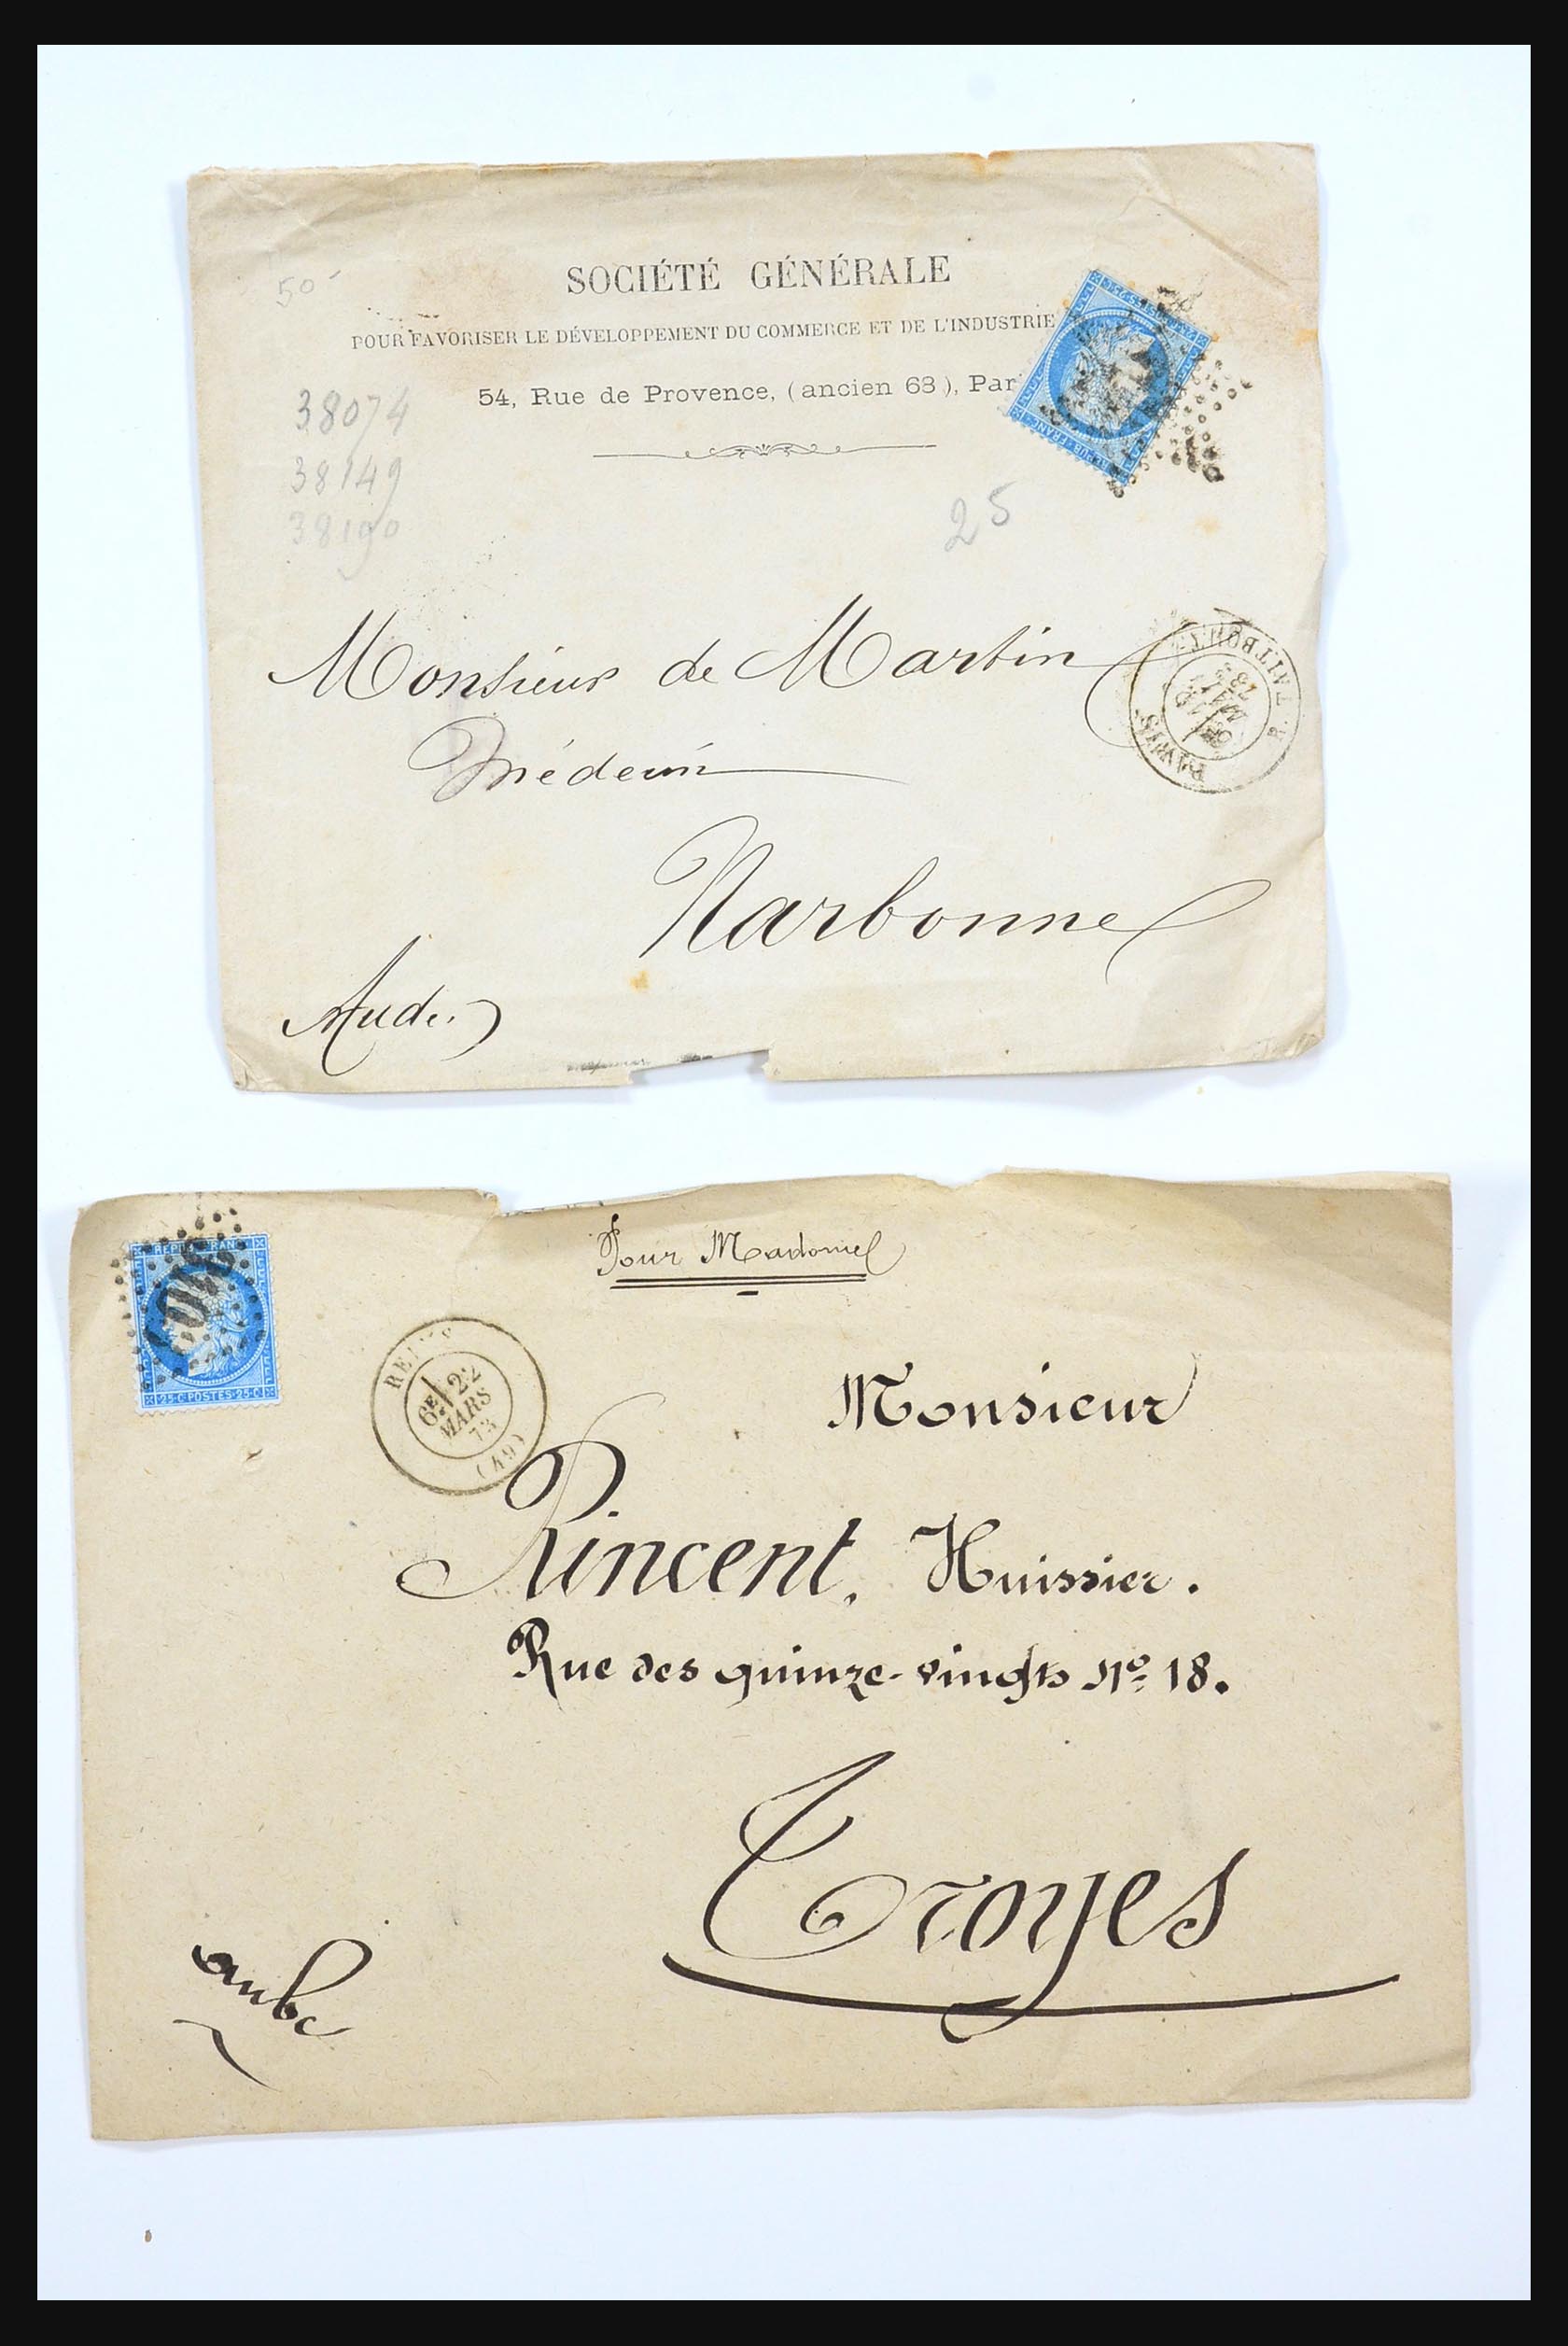 50-
SOCIÉTÉ GÉNÉRALE
POUR FAVORISER LE DÉVELOPPEMENT DU COMMERCE ET DE L'INDUSTRIE
54, Rue de Provence, (ancien 68), Par
38074
38149
38190
25
Monsieur de Martin
Médecin
Narbonne
Aude.
PARIS R. TAITBOUT
73
REPUB FRANC
25·C·POSTES·25·C
Pour Madame
REIMS
6E 22
MARS
73
(49)
Monsieur
Vincent, Huissier.
Rue des quinze-vingts No 18.
Troyes
aube